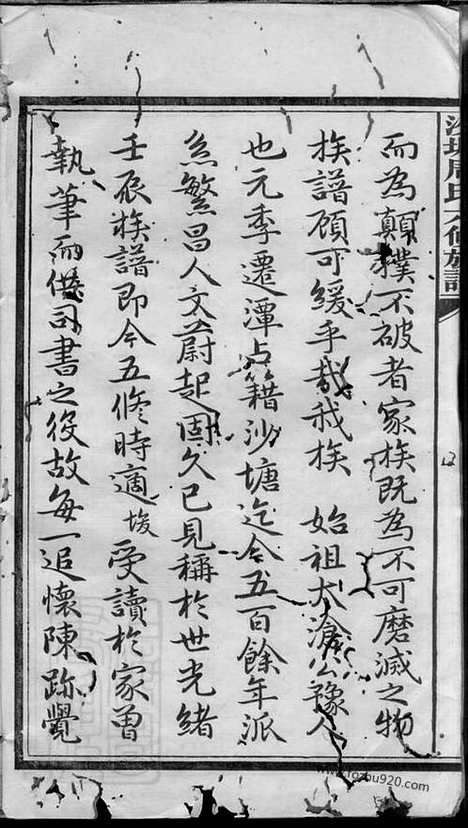 沙塘周氏六修族譜
而為顛撲不破者家族既為不可磨滅之物
族譜顧可緩乎哉我族 始祖太滄公豫人
也元季遷潭占籍沙塘迄今五百餘年派
系繁昌人文蔚起固久已見稱於世光緒
壬辰族譜即今五修時適堎受讀於家曾
執筆而供司書之役故每一追懷陳跡覺
www.fozpu920.com